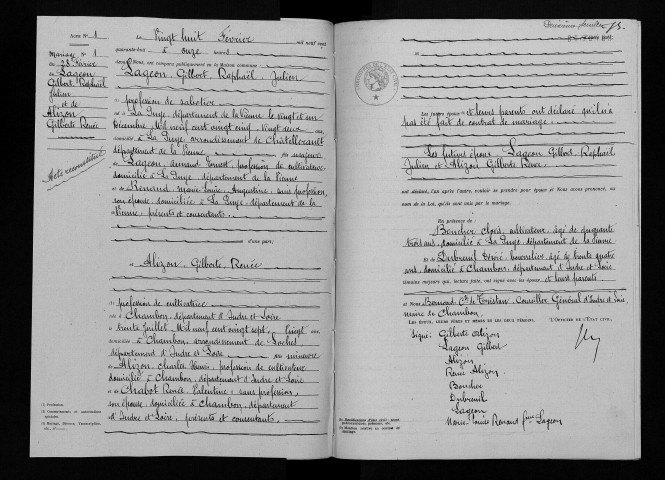 Acte N° 1
Mariage N° 1
du 28 Février
de Lageon
Gilbert, Raphaël
Julien
et de
Alizon
Gilberte Renée
Acte reconstitué
Le Vingt huit Février mil neuf cent
quarante-huit à onze heures
devant Nous, ont comparu publiquement en la Maison commune :
Lageon, Gilbert, Raphaël, Julien
profession de
né à La Puye, département de la Vienne le vingt et un
décembre, Mil neuf cent vingt cinq, vingt deux ans,
domicilié à La Puye arrondissement de Châtellerault
département de la Vienne majeur
fils de Lageon, Armand Ernest, profession de cultivateur
domicilié à La Puye département de la Vienne
et de Renaud, Marie Louise, Augustine, sans profession,
son épouse, domiciliée à La Puye, département de la
Vienne, présents et consentants.
d'une part ;
et Alizon, Gilberte, Renée
profession de cultivatrice
née à Chambon, département d'Indre et Loire
le trente Juillet, Mil neuf cent vingt sept, Vingt ans
domiciliée à Chambon, arrondissement de Loches
département d'Indre et Loire mineure
fille de Alizon, Charles, profession de cultivateur
domicilié à Chambon, département d'Indre et Loire
et de Chabot Renée, Valentine sans profession,
son épouse, domiciliée à Chambon, département
d'Indre et Loire, présents et consentants.
(1) Profession.
Les futurs époux et leurs parents ont déclaré qu'il n'a
pas été fait de contrat de mariage
Les futurs époux, Lageon Gilbert, Raphaël
Julien et Alizon Gilberte Renée
ont déclaré, l'un après l'autre, vouloir se prendre pour époux et Nous avons prononcé, au
nom de la Loi, qu'ils sont unis par le mariage.
En présence de
Boucher, cultivateur, âgé de cinquante
trois ans, domicilié à La Puye, département de la Vienne
et Dubreuil Désiré, âgé de trente quatre
ans, domicilié à Chambon, département d'Indre et Loire
témoins majeurs qui, lecture faite, ont signé avec les époux et leurs parents
et Nous, Bernard Cte de Tristan, Conseiller Général d'Indre et Loire,
maire de Chambon.
Les époux, leurs pères et mères et les deux témoins,
L'Officier de l'État civil,
Signé : Gilberte Alizon
Lageon Gilbert
Alizon
Renée Alizon
Boucher
Dubreuil
Lageon
Marie Louise Renaud Lageon